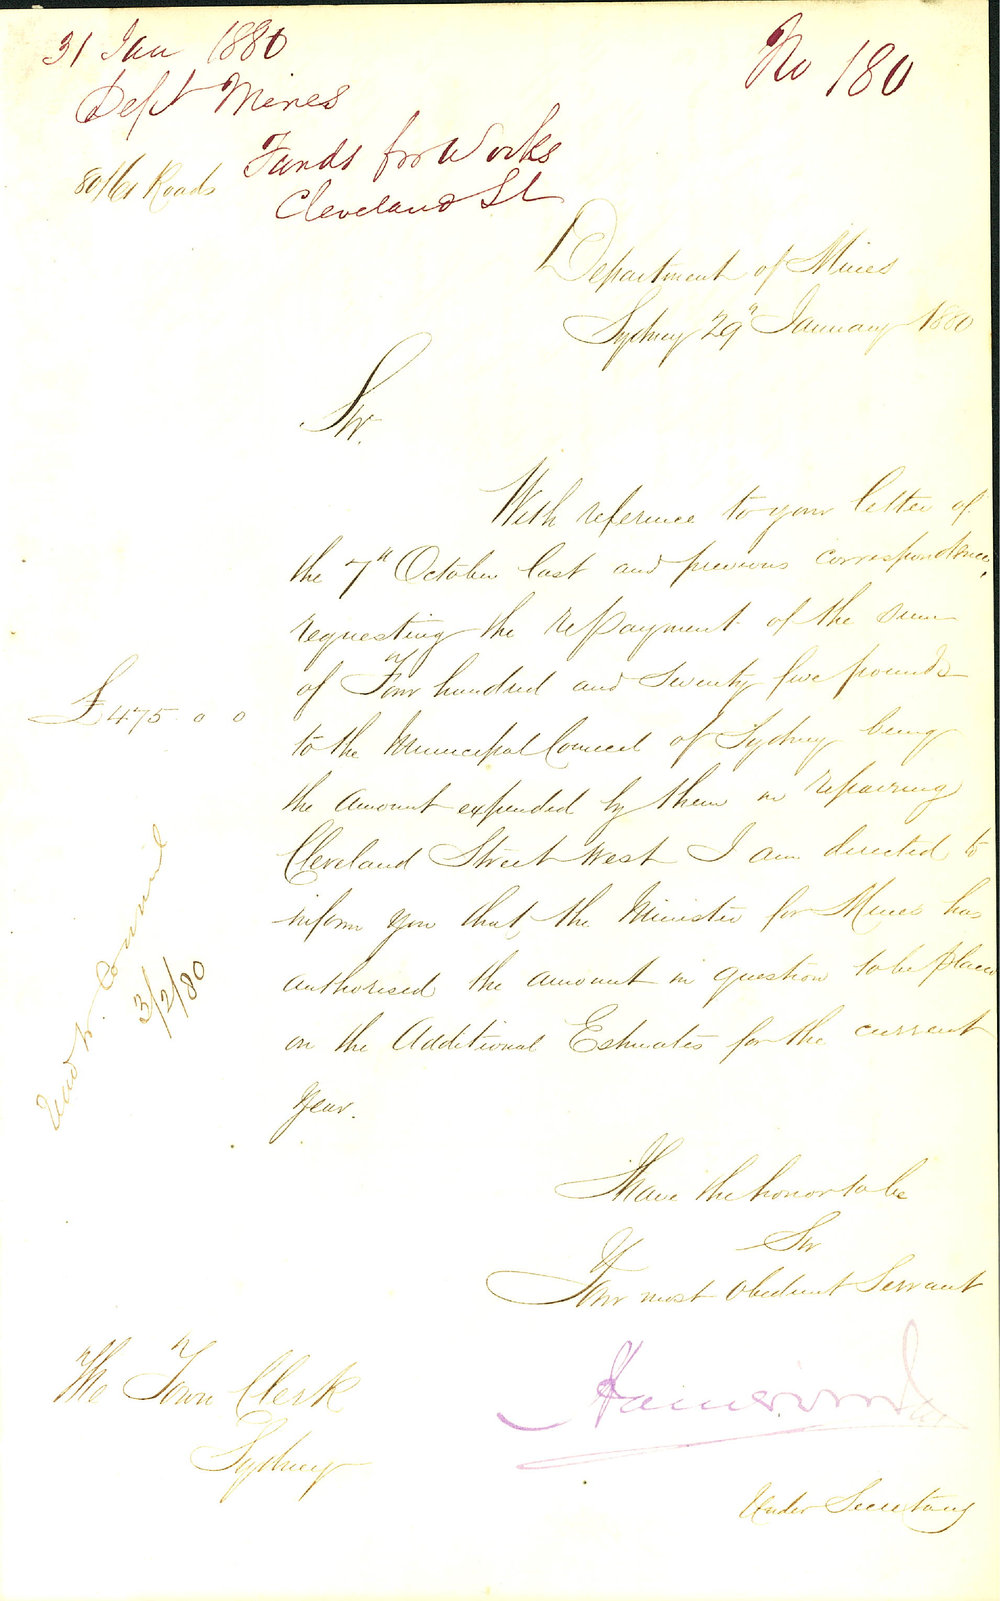 31 Jan 1880
No 180
Dept Mines
80/61 Roads
Funds for Works
Cleveland St
Department of Mines
Sydney 29th January 1880
Sir.
With reference to your letter of
the 7th October last and previous correspondence,
requesting the repayment of the sum
of Four hundred and seventy five pounds
£475 0 0
to the Municipal Council of Sydney being
the amount expended by them in repairing
Cleveland Street West I am directed to
inform you that, the Minister for Mines has
authorised the amount in question to be placed
on the Additional Estimates for the current
year.
Read in Council
3/2/80
I have the honor to be
Sir
Your most obedient Servant
The Town Clerk
Sydney
Under Secretary